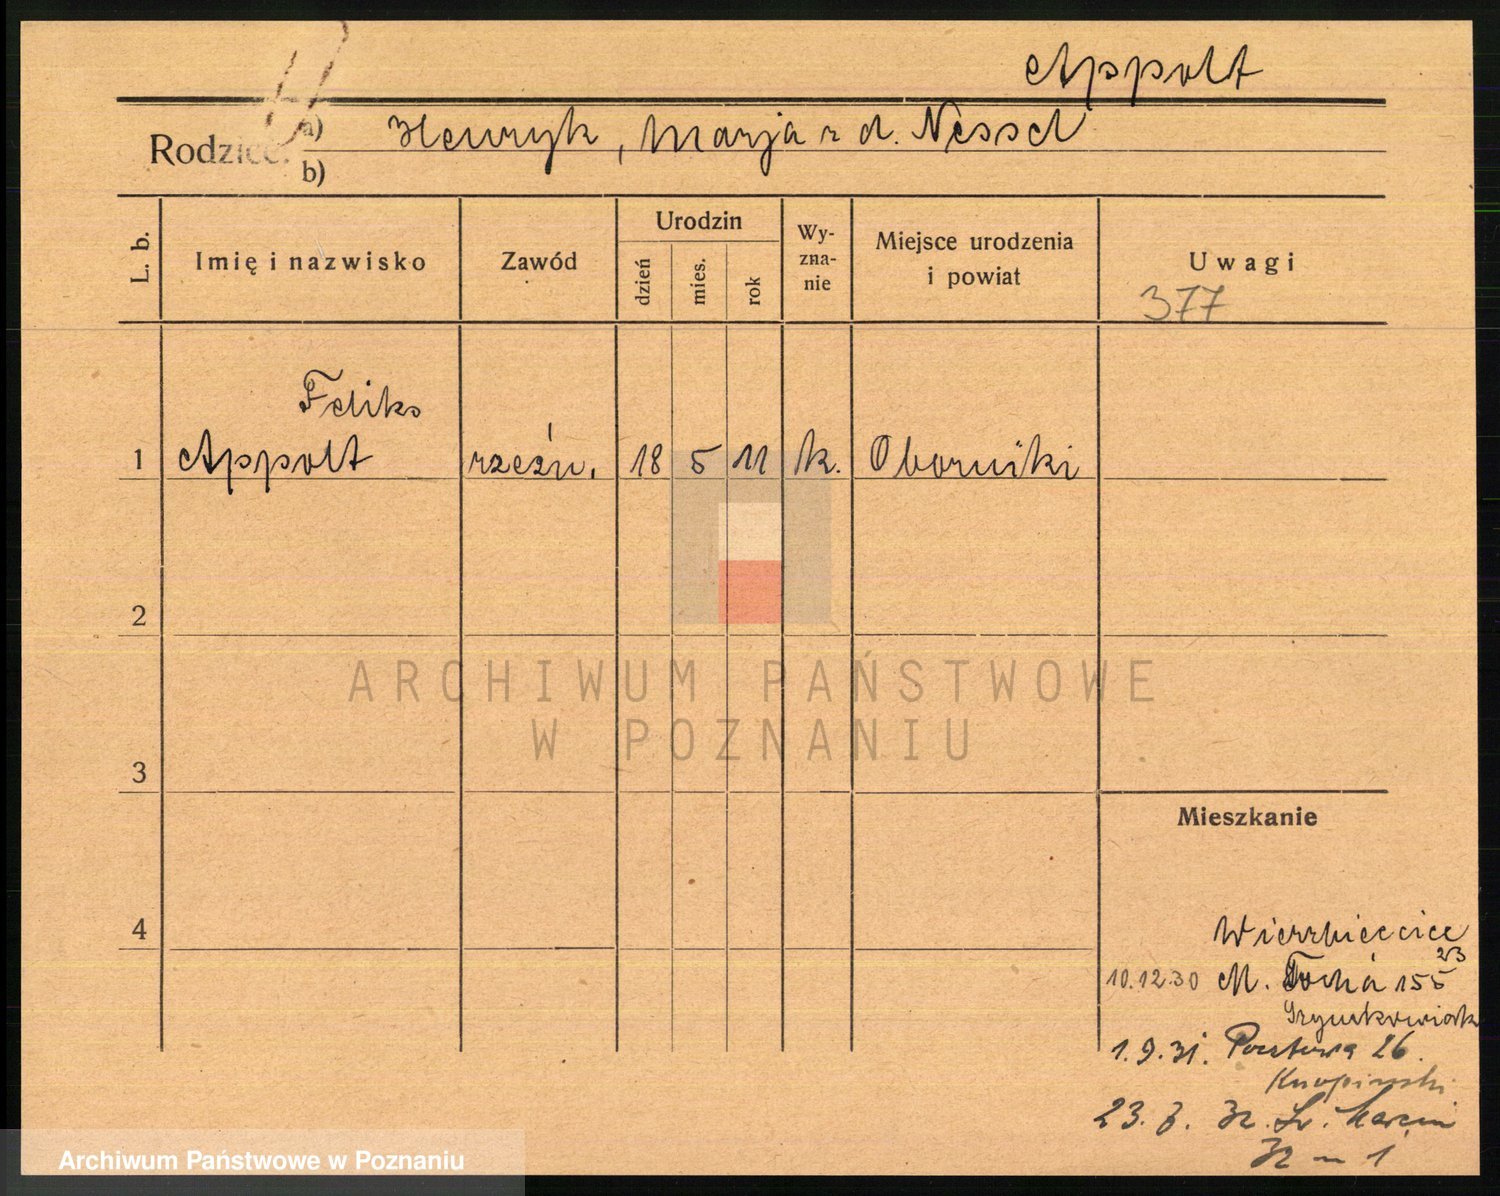 Appolt
Rodzice: a) Henryk, Marja z d. Nessel
b)
L. b.
Imię i nazwisko
Zawód
Urodzin
dzień
mies.
rok
Wy-
zna-
nie
Miejsce urodzenia
i powiat
Uwagi
377
Feliks
1 Appolt rzeźn. 18 5 11 k. Oborniki
2
3
4
ARCHIWUM PAŃSTWOWE
W POZNANIU
Mieszkanie
Wierzbięcice
23
10.12.30 M. Focha 155
1.9.31. Pocztowa 26.
23. Św. Marcin
Archiwum Państwowe w Poznaniu